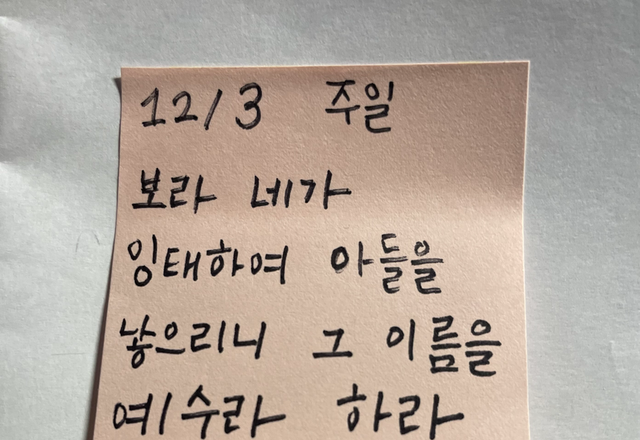 12/3 주일
보라 네가
잉태하여 아들을
낳으리니 그 이름을
예수라 하라